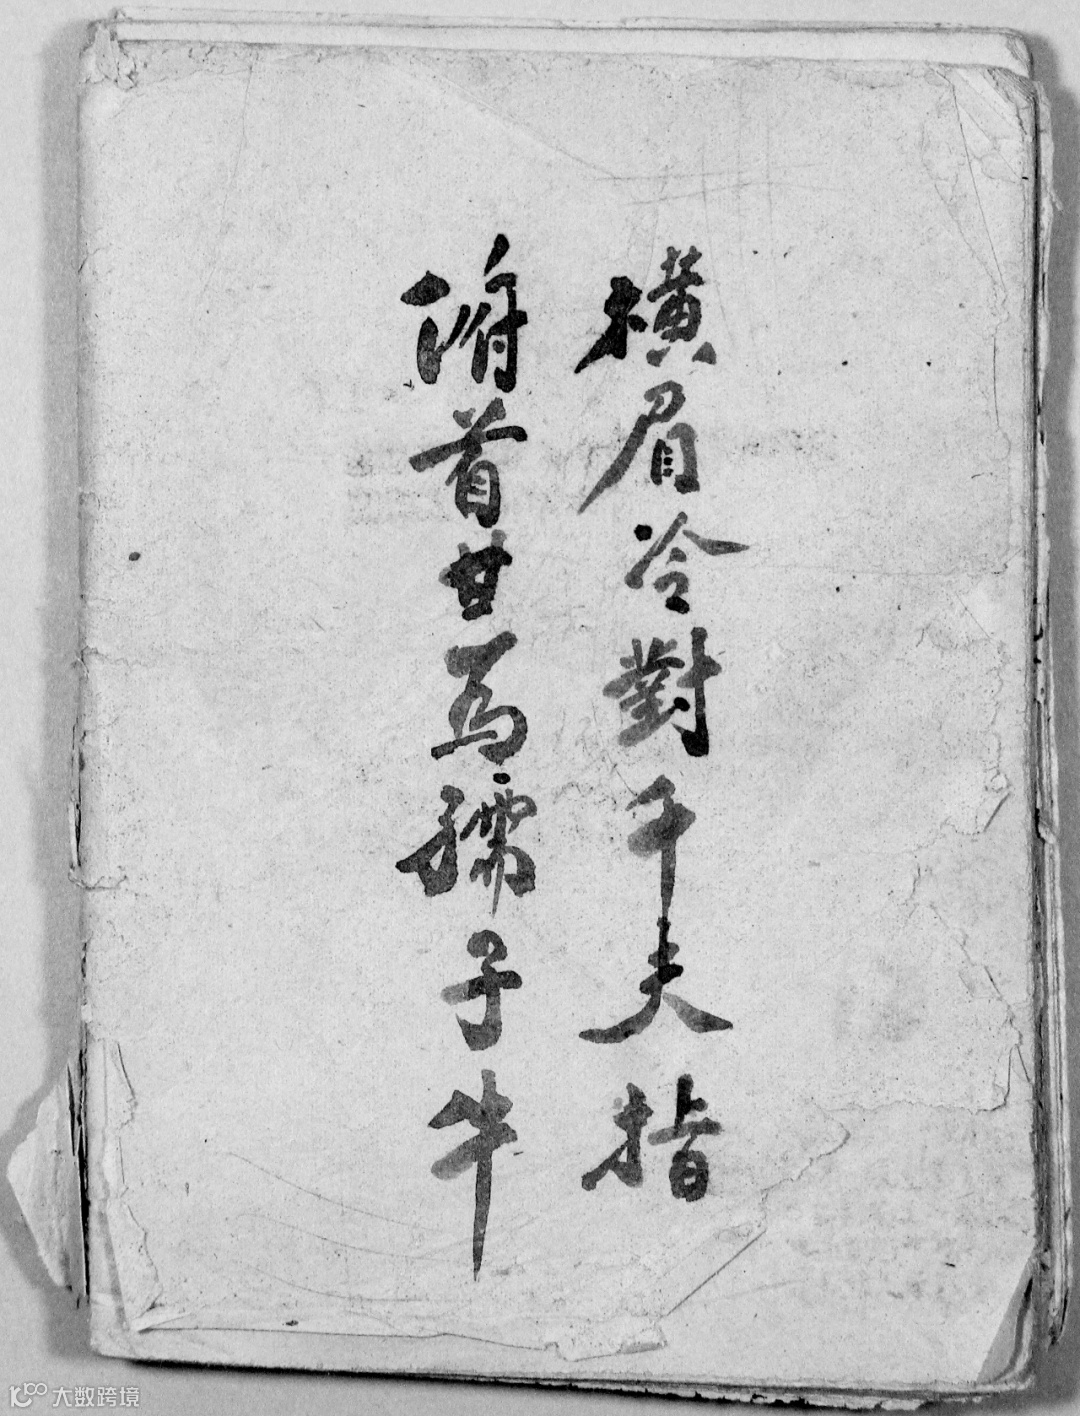 橫眉冷對千夫指
俯首甘為孺子牛
大数跨境